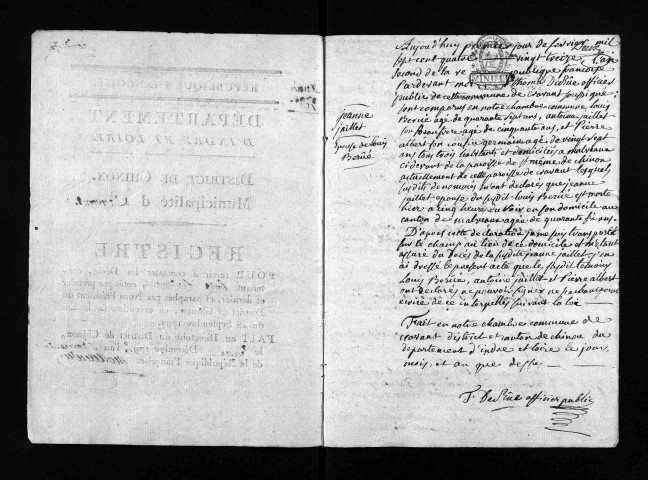 Aujourd'huy premier jour de fevrier mil
sept cent quatre vingt treize l'an
second de la republique francoise
Pardevant moy thomas officier
public de cette commune de cravant soussigné
sont comparus en notre chambre commune louis
Berüé agé de quarante sept ans, antoine jaillet
son beaufrere agé de cinquante ans, et Pierre
albert son cousin germain agé de vingt sept
ans tous trois habitants et domiciliés a malvaux
ci devant de la paroisse de St même de chinon
actuellement de cette paroisse de cravant lesquels
susdit denommés m'ont declarés que jeanne
jaillet epouse du susdit louis Berüé est morte
hier a cinq heures du soir en son domicile au
canton de malvaux agée de quarante six ans.
D'apres cette declaration je me suis transporté
sur le champ au lieu de ce domicile et m'etant
assuré du Deces de la susdite jeanne jaillet j'en
ai dressé le present acte que les susdit temoins
Louis Berüé, antoine jaillet et Pierre albert
ont declarés ne pouvoir signer ne sachant pas
de ce interpellés suivant la loi
Fait en notre chambre commune de
cravant district et canton de chinon du
departement d'indre et loire le jour,
mois, et an que dessus
officier public
jeanne
jaillet
Epouse de louis
Berüé
REPUBLIQUE FRANÇOISE
DÉPARTEMENT
D'INDRE ET LOIRE.
DISTRICT DE CHINON.
Municipalité d
REGISTRE
POUR servir à constater les Décès,
tenant
et dernier, et paraphés par Nous Président du
District de Chinon,
du 20 Septembre 1792.
FAIT au Directoire du District de Chinon,
le Décembre 1792, l'an
de la République Françoise.